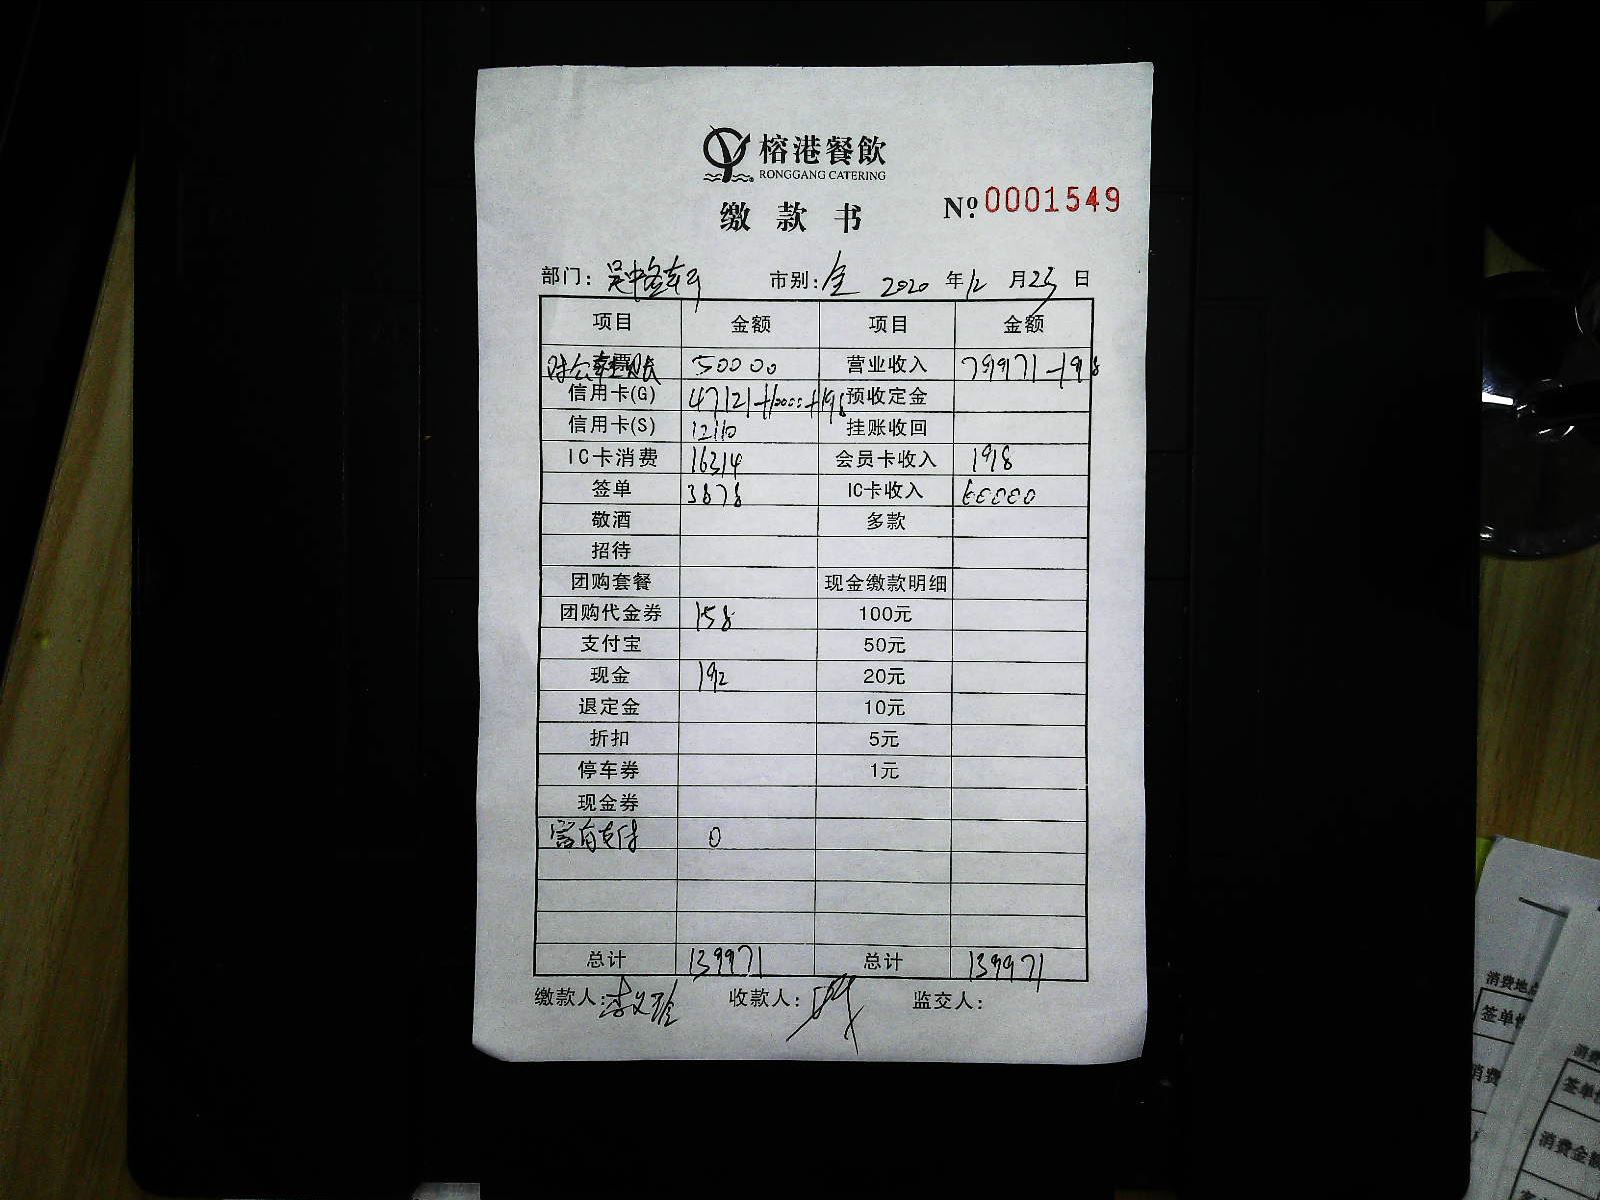 榕港餐飲
RONGGANG CATERING
缴款书 Nº 0001549
部门: 吴中 市别: 全 2020 年 12 月 25 日
项目 金额 项目 金额
对公 50000 营业收入 79971-198
信用卡(G) 47121+10000+198 预收定金
信用卡(S) 12110 挂账收回
IC卡消费 16314 会员卡收入 198
签单 3878 IC卡收入 60000
敬酒 多款
招待
团购套餐 现金缴款明细
团购代金券 158 100元
支付宝 50元
现金 192 20元
退定金 10元
折扣 5元
停车券 1元
现金券
支付 0
总计 139971 总计 139971
缴款人: 李文 收款人: 监交人:
消费地点
签单
消费
消费
签单
消费金额